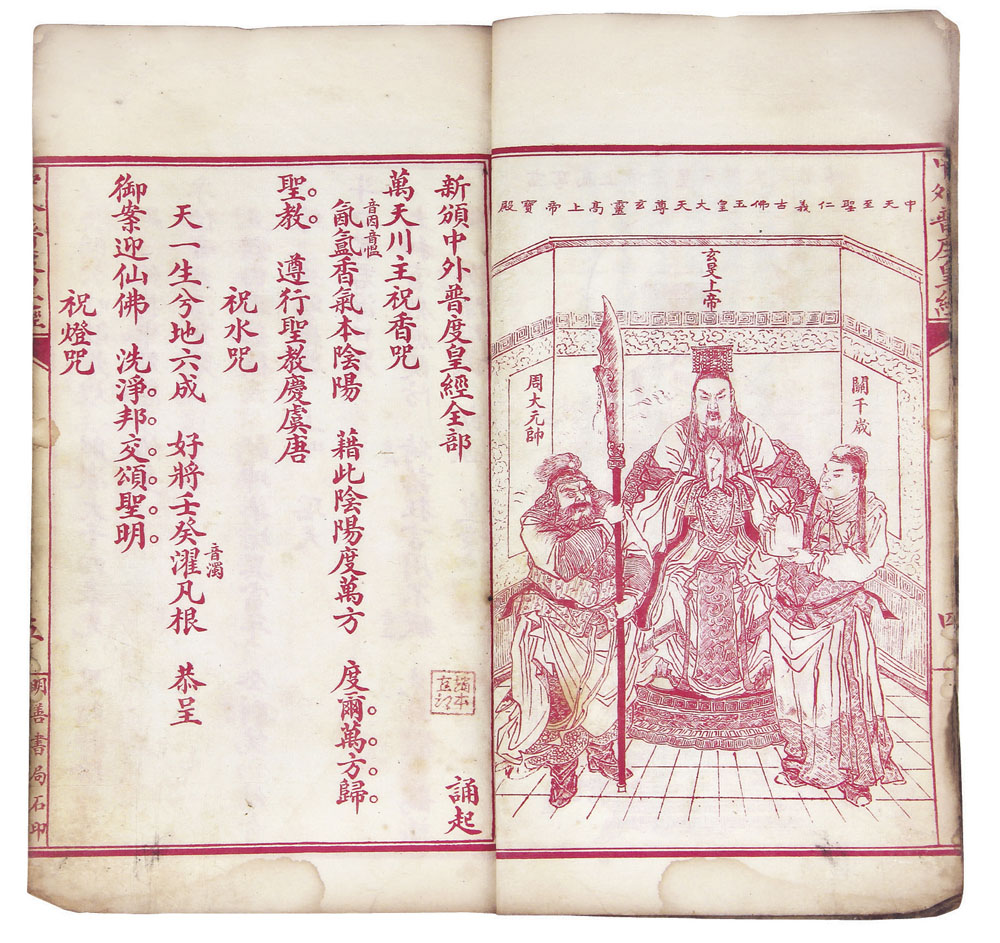 中外普度皇經
四
中天至聖仁義古佛玉皇大天尊玄靈高上帝寶殿
玄旻上帝
關千歲
周大元帥
新頒中外普度皇經全部
誦起
萬天川主祝香咒
氤氳香氣本陰陽　藉此陰陽度萬方　度爾。萬。方。歸。
音因
音慍
聖。教　遵行聖教慶虞唐
祝水咒
天一生兮地六成　好將壬癸濯凡根　恭呈
音濁
御案迎仙佛　洗淨。邦。交。頌。聖。明。
祝燈咒
五
明善書局石印